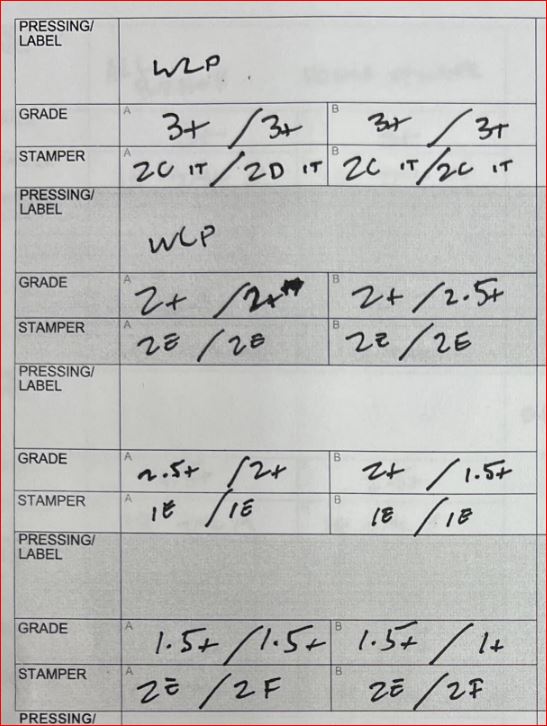 PRESSING/
LABEL
WLP
GRADE A 3+ / 3+ B 3+ / 3+
STAMPER A 2C 1T / 2D 1T B 2C 1T / 2C 1T
PRESSING/
LABEL
WLP
GRADE A 2+ / 2+ B 2+ / 2.5+
STAMPER A 2E / 2E B 2E / 2E
PRESSING/
LABEL
GRADE A 2.5+ / 2+ B 2+ / 1.5+
STAMPER A 1E / 1E B 1E / 1E
PRESSING/
LABEL
GRADE A 1.5+ / 1.5+ B 1.5+ / 1+
STAMPER A 2E / 2F B 2E / 2F
PRESSING/